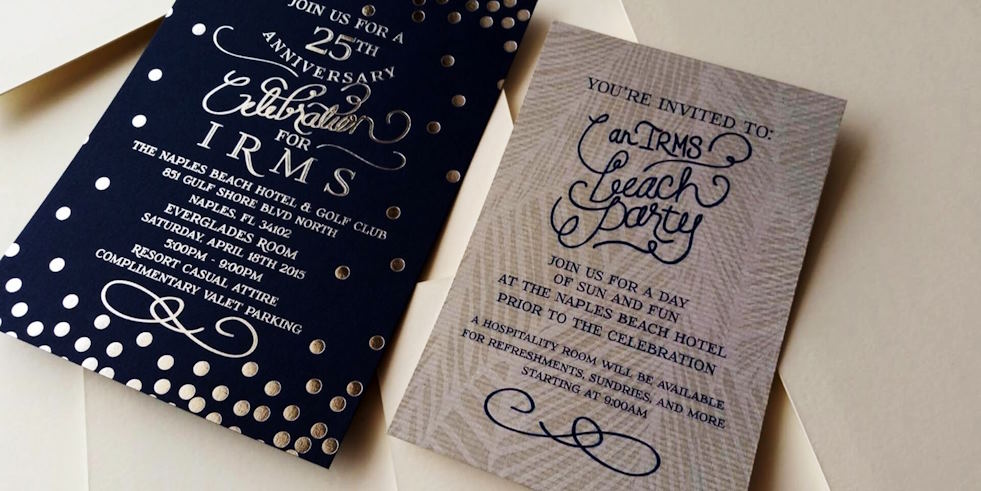 JOIN US FOR A
25TH
ANNIVERSARY
Celebration
FOR
IRMS
THE NAPLES BEACH HOTEL & GOLF CLUB
851 GULF SHORE BLVD NORTH
NAPLES, FL 34102
EVERGLADES ROOM
SATURDAY, APRIL 18TH 2015
5:00PM - 9:00PM
RESORT CASUAL ATTIRE
COMPLIMENTARY VALET PARKING
YOU'RE INVITED TO:
an IRMS
beach
party
JOIN US FOR A DAY
OF SUN AND FUN
AT THE NAPLES BEACH HOTEL
PRIOR TO THE CELEBRATION
A HOSPITALITY ROOM WILL BE AVAILABLE
FOR REFRESHMENTS, SUNDRIES, AND MORE
STARTING AT 9:00AM